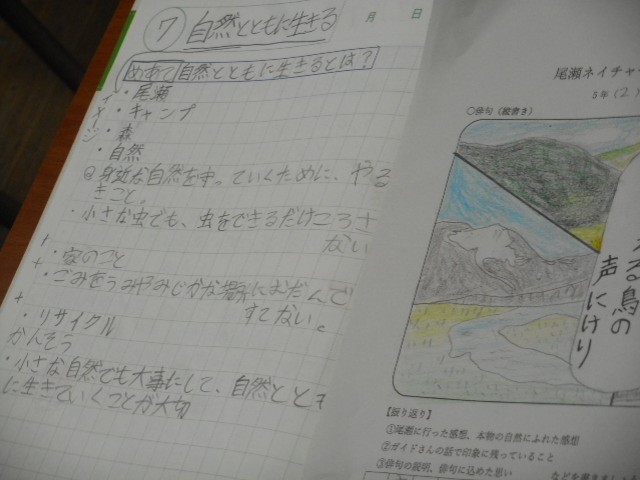 ⑦ 自然とともに生きる
月 日
めあて 自然とともに生きるとは?
イメージ
・尾瀬
・キャンプ
・森
・自然
◎身近な自然を守っていくために、やる
きこと。
・小さな虫でも、虫をできるだけころさ
ない
・家のこと
・ごみをうみやみじかな場所に
すてない。
・リサイクル
かんそう
・小さな自然でも大事にして、自然ととも
に生きていくことが大切
尾瀬ネイチャ
5年(2)
○俳句(縦書き)
る鳥の
声にけり
【振り返り】
①尾瀬に行った感想、本物の自然にふれた感想
②ガイドさんの話で印象に残っていること
③俳句の説明、俳句に込めた思い